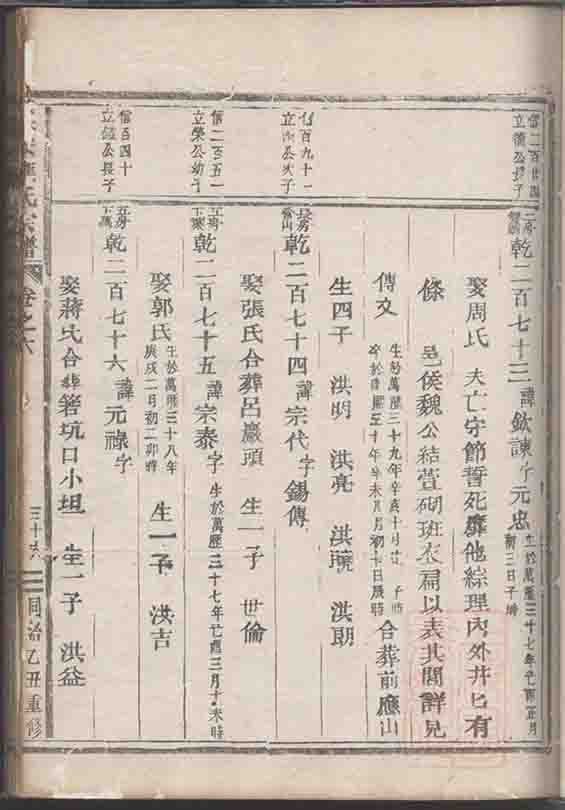 信二百廿四
立德公長子
乾二百七十三 諱欽諫 字元忠 生於萬歷三十七年己酉正月初三日子時
娶周氏 夫亡守節誓死靡他綜理內外井匕有
條 邑侯魏公結萱砌班衣扁以表其閭詳見
傳文 生於萬歷三十九年辛亥十月廿 子時 合葬前應山
生四子 洪明 洪亮 洪曉 洪朗
百九十一
乾二百七十四 諱宗代 字錫傳
娶張氏合葬呂巖頭 生一子 世倫
信二百五一
立榮公幼子
乾二百七十五 諱宗泰 字 生於萬歷三十七年己酉三月十 未時
娶郭氏 生於萬歷三十八年庚戌二月初二卯時 生一子 洪吉
信百四十
立 公長子
五房 乾二百七十六 諱元祿 字
娶蔣氏合葬箬坑口小坦 生一子 洪益
氏宗譜 卷之六
同治乙丑重修